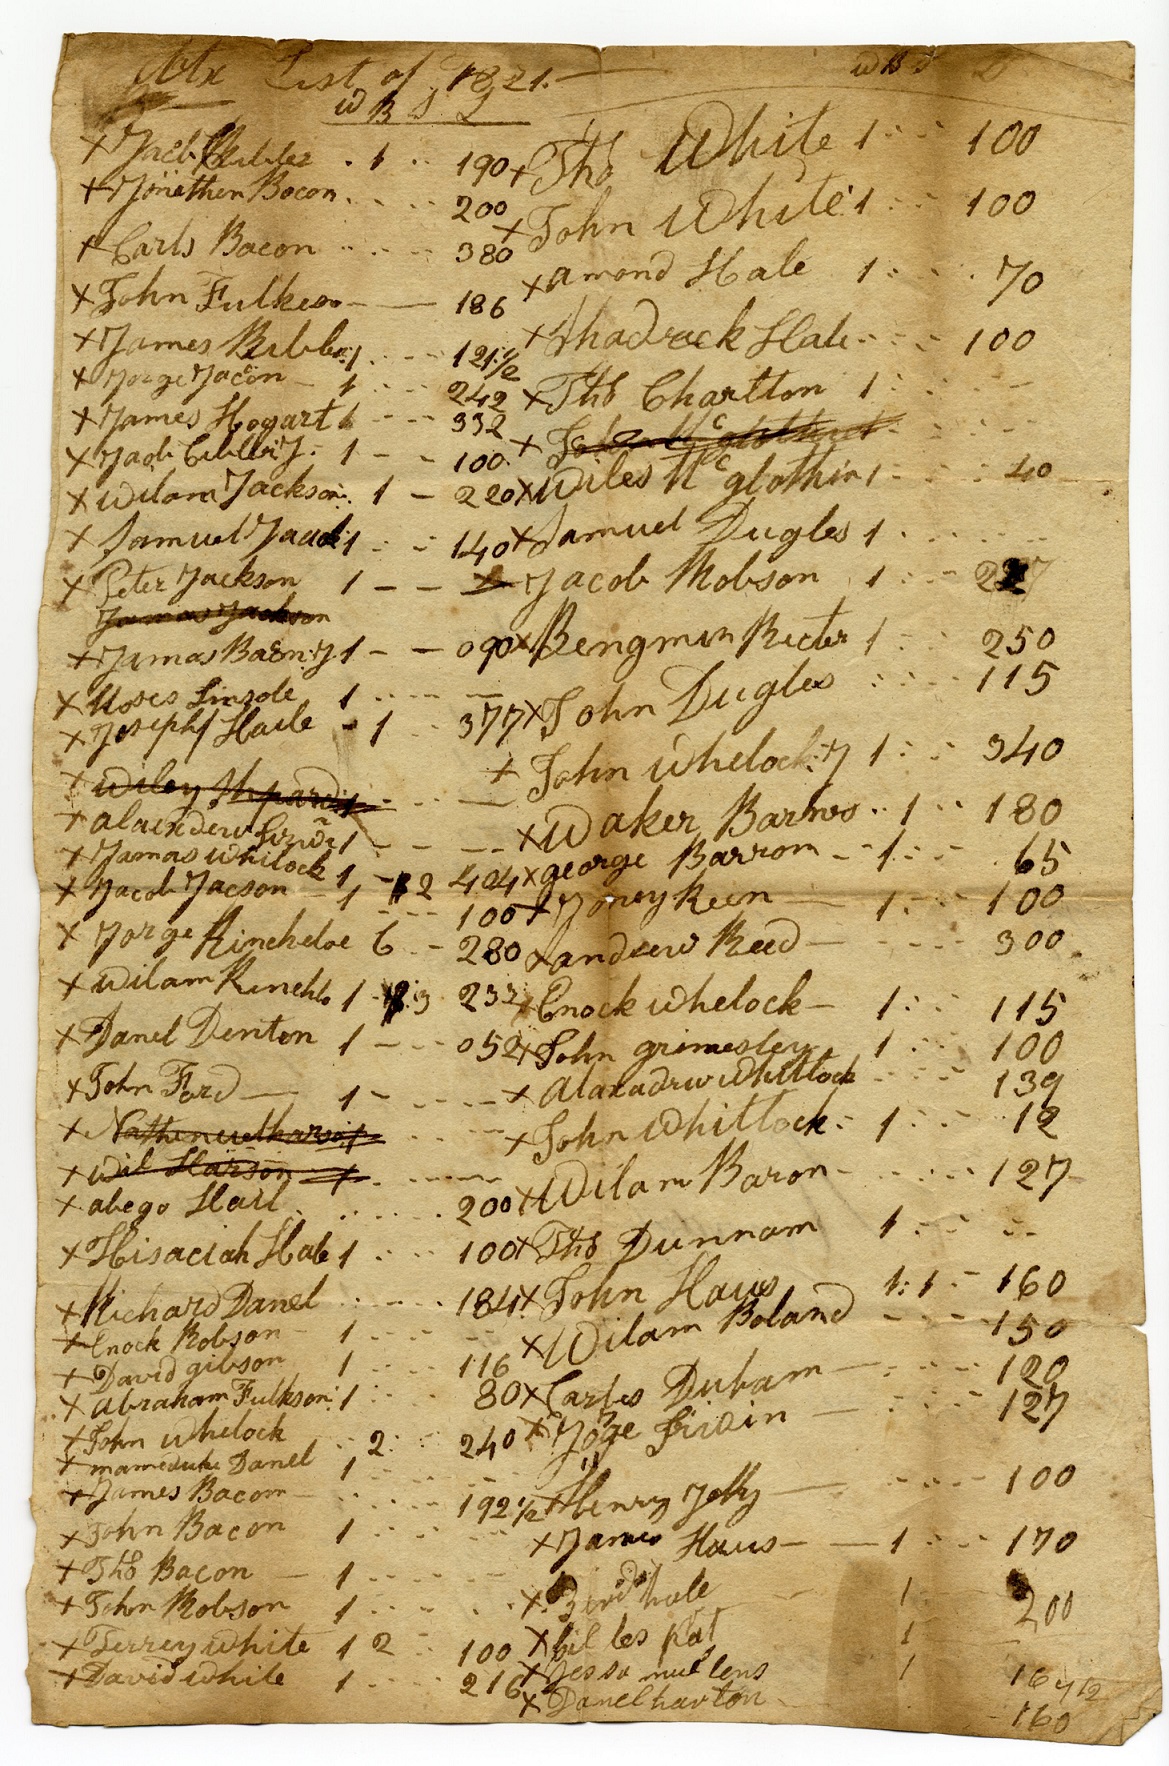 List of 1821.
w B S L
X Jacb Kibbler 1 190
X Jonathen Bocon 200
X Carls Bacon 380
X John Fulkeson 186
X James Kibbler 1 121 1/2
X Jorge Jacon 1 242
X James Hogart 1 332
X Jacb Cibller J. 1 100
X Wilam Jackson 1 220
X Samuel Jacd 1 140
X Peter Jackson 1
James Jackson
X James Bacn J 1 090
X Moses Linsole 1
X Joseph Haile 1 377
X Wiley Shpard 1
X alaxndew 1
X James Whilock 1 2 404
X Jacob Jacson 1 100
X Jorge Kincheloe 6 280
X Wilam Kinchlo 1 3 233
X Danel Denton 1 052
X John Ford 1
X Nathen welharson 1
X Wil Harson 1
X abego Hail 200
X Hisaciah Hale 1 100
X Richard Danel 184
X Enock Robson 1
X David gibson 1 116
X Abraham Fulkson 1 80
X John Whelock 2 240
X mameduke Danel 1
X James Bacon 192 1/2
X John Bacon 1
X Tho Bacon 1
X John Robson 1
X Terrey White 1 2 100
X David White 1 216
w B S L
X Tho White 1 100
X John White 1 100
X amond Hale 1 70
X Shadrack Hale 100
X Tho Charlton 1
X John Mc glothin
X Wiles Mc glothin 1 40
X Samuel Dugles 1
X Jacob Robson 1 227
X Bengmin Recter 1 250
X John Dugles 115
X John Whelock J 1 340
X Waker Barnes 1 180
X george Barrom 1 65
X Joney Keen 1 100
X andrew Reed 300
X Enock Whelock 1 115
X John grimesley 1 100
X Alaxadrw Whitlock 139
X John Whitlock 1 12
X Wilam Baron 127
X Tho Dunnam 1
X John Haws 1 1 160
X Wilam Boland 150
X Carles Duham 120
X Joge 127
X Henry Jolly 100
X James Haws 1 170
X Bird hale 1 200
X bil les pat 1
X Jessa mullens 1 16 1/2
X Danel harton 160